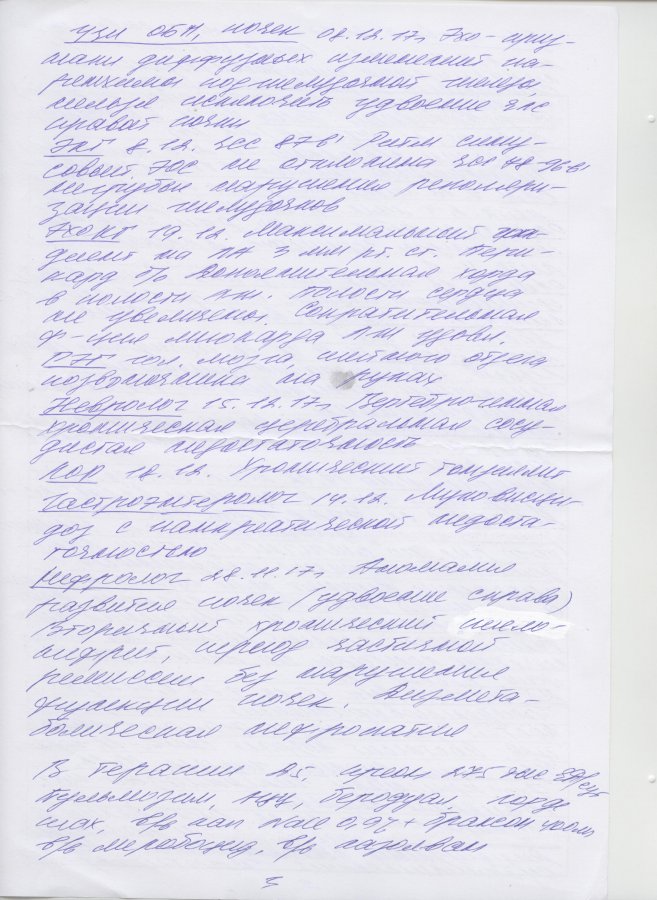 УЗИ ОБП, почек 08.12.17г Эхо-приз-
наки диффузных изменений па-
ренхимы поджелудочной железы,
нельзя исключить удвоение ЧЛС
правой почки
ЭКГ 8.12. ЧСС 87 в' Ритм сину-
совый. ЭОС не отклонена 78-96 в'
негрубые нарушения реполяри-
зации желудочков
ЭХОКГ 19.12. Максимальный гра-
диент на ЛА 3 мм рт. ст. Пери-
кард б/о Дополнительная хорда
в полости лж. Полости сердца
не увеличены. Сократительная
ф-ция миокарда ЛЖ удовл.
РЭГ гол. мозга, шейного отдела
позвоночника на руках
Невролог 15.12.17г Вертеброгенная
хроническая церебральная сосу-
дистая недостаточность
ЛОР 18.12. Хронический тонзиллит
Гастроэнтеролог 14.12. Муковисци-
доз с панкреатической недоста-
точностью
Нефролог 28.11.17г Аномалия
развития почек (удвоение справа)
Вторичный хронический пиело-
нефрит, период частичной
ремиссии без нарушения
функции почек. Дизмета-
болическая нефропатия
В терапии креон 275 тыс ЕД/сут
Пульмозим, АЦЦ, беродуал,
в/в кап NaCl 0,9% + браксон
в/в меробоцид, в/в